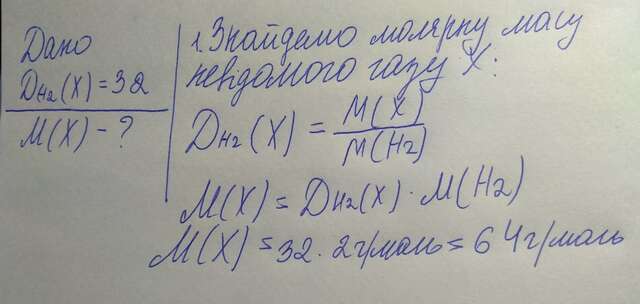 Дано
DH2(X)=32
M(X) - ?
1. Знайдемо молярну масу
невідомого газу X:
DH2(X) = M(X)
M(H2)
M(X) = DH2(X) · M(H2)
M(X) = 32 · 2г/моль = 64г/моль